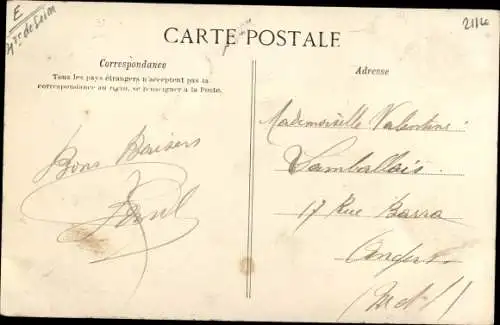 E
21/20
CARTE POSTALE
Correspondance
Tous les pays étrangers n'acceptent pas la
correspondance au recto, se renseigner à la Poste.
Bons Baisers
Adresse
Mademoiselle Valentine
Lamballais
17 Rue Barra
Angers
(M et L)